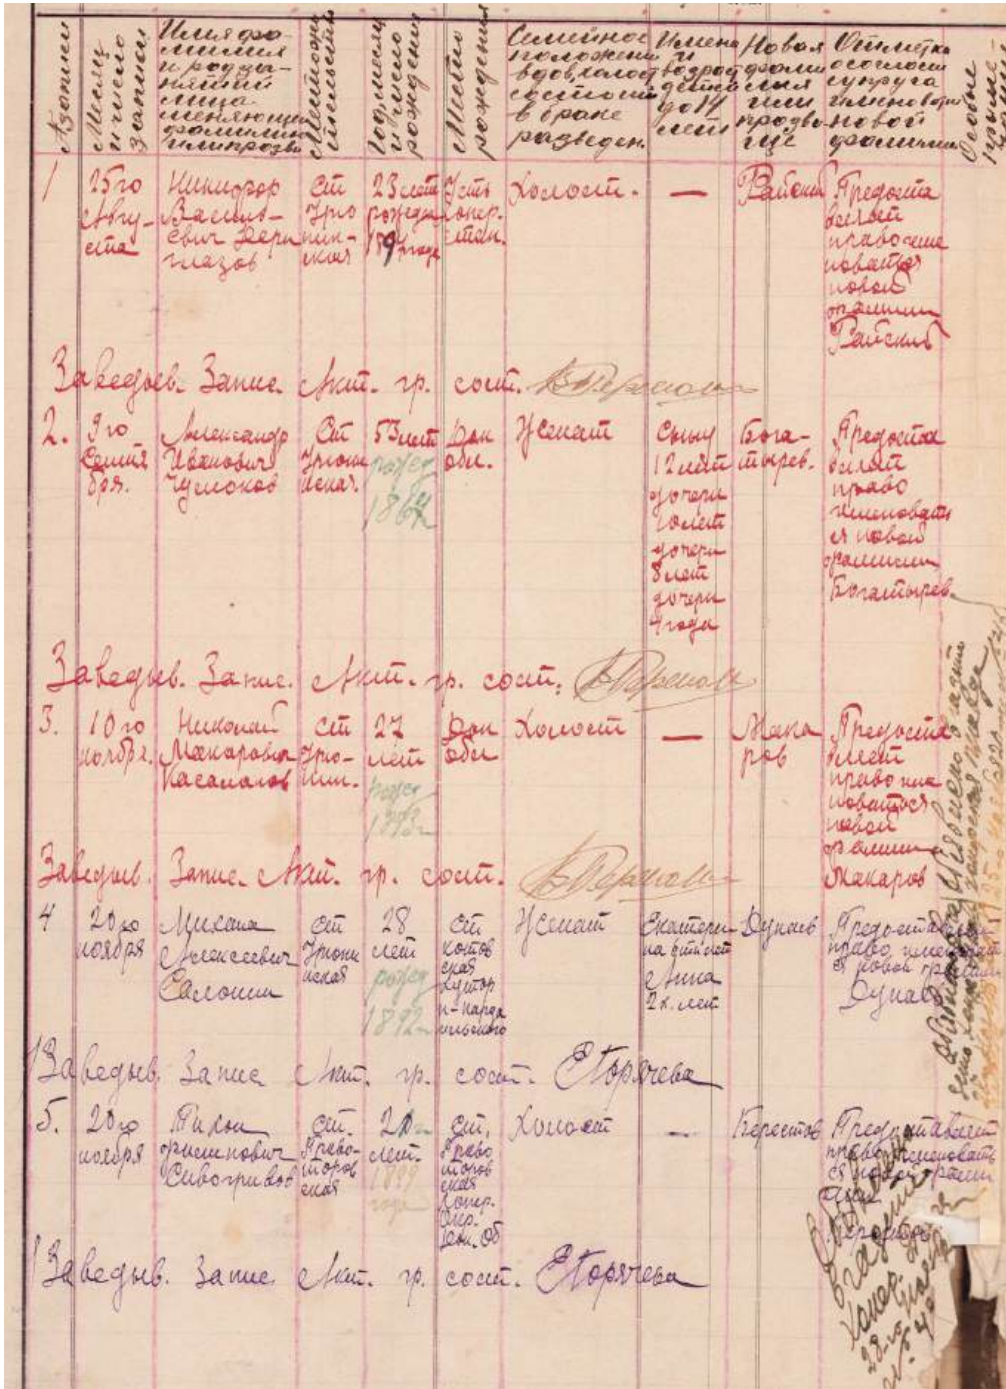 № записи
Месяц
и число
записи
Имя фа-
милия
и родды-
нятий
лица
меняющих
фамилию
или прозви
Местожи
тельство
Год, месяц
и число
рождения
Место
рождения
Семейное
положение
вдов, холост
состоит
в браке
разведен.
Имена
и
возраст
детей
до 14
лет
Новая
фами
лия
или
прозви-
ще
Отметка
о согласии
супруга
новой
фамилии
Особые
1
25го
Авгу-
ста
Никифор
Василь-
евич Дери
глазов
Ст
Урю
пин-
ская
23 лет
рожден
1897 года
Усть
хопер.
стан.
Холост.
—
Райский
Предоста
вляет
право име
новаться
новой
фамилии
Райский
Заведыв. Запис. Акт. гр. сост.
2.
9го
Сентя
бря.
Александр
Иванович
Чумоков
Ст
Урюпи
нская.
53 лет
рожд
1867г
Дон
обл.
Женат
Сыну
12 лет
дочери
10 лет
дочери
8 лет
дочери
4 года
Бога-
тырев.
Предостав
вляет
право
именовать
ся новой
фамилии
Богатырев.
Заведыв. Запис. Акт. гр. сост.
3.
10го
ноября.
Николай
Макарович
Касалапов
Ст
Урю-
пин.
27
лет
рожд
1893г
Дон
обл
Холост
—
Мака
ров
Предоста
вляет
право име
новаться
новой
фамилии
Макаров
Заведыв. Запис. Акт. гр. сост.
4
20го
ноября
Михаил
Алексеевич
Салошин
Ст
Урюпи
нская
28
лет
рожд
1892г
Ст
котов
ская
хутор
Женат
Екатери-
на лет
Анна
2х. лет
Дунаев
Предоставляет
право именоват
ся новой фамилии
Дунаев
Заведыв. Запис. Акт. гр. сост. ЕГорячева
5.
20го
ноября
Тихон
Филипович
Сивогривов
Ст.
Право-
торов
ская
21
лет.
1899
года
Ст.
Право
торов
ская
Хопер.
Окр.
Дон. Об
Холост
—
Берестов
Предоставляет
право именовать
ся новой фамили
Берестов
Заведыв. Запис. Акт. гр. сост. ЕГорячева